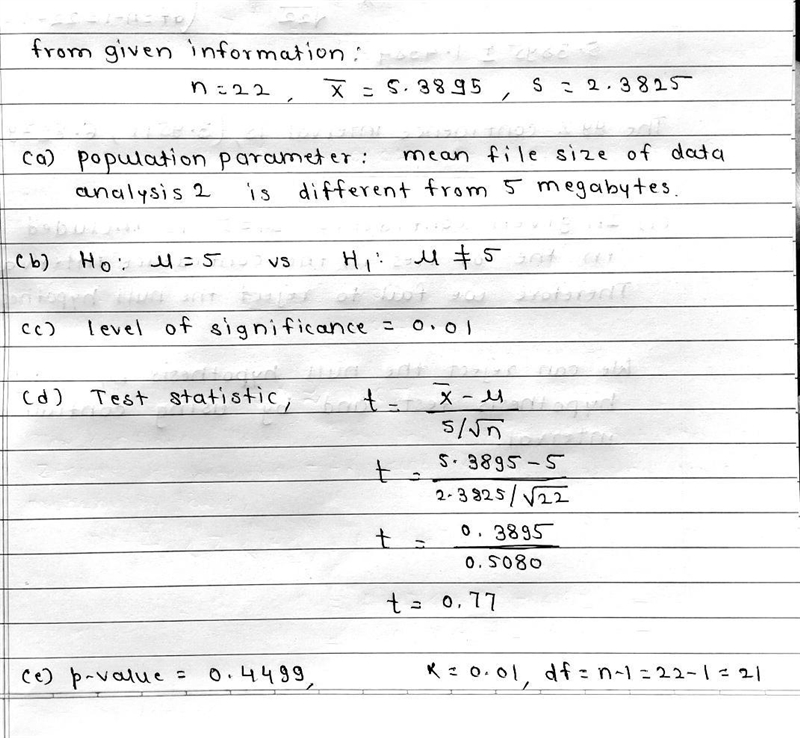 from given information:
n = 22, x̄ = 5.3895, s = 2.3825
(a) population parameter: mean file size of data
analysis 2 is different from 5 megabytes.
(b) H₀: μ = 5 vs H₁: μ ≠ 5
(c) level of significance = 0.01
(d) Test statistic, t = x̄ - μ / s/√n
t = 5.3895 - 5 / 2.3825/√22
t = 0.3895 / 0.5080
t = 0.77
(e) p-value = 0.4499, α = 0.01, df = n-1 = 22-1 = 21